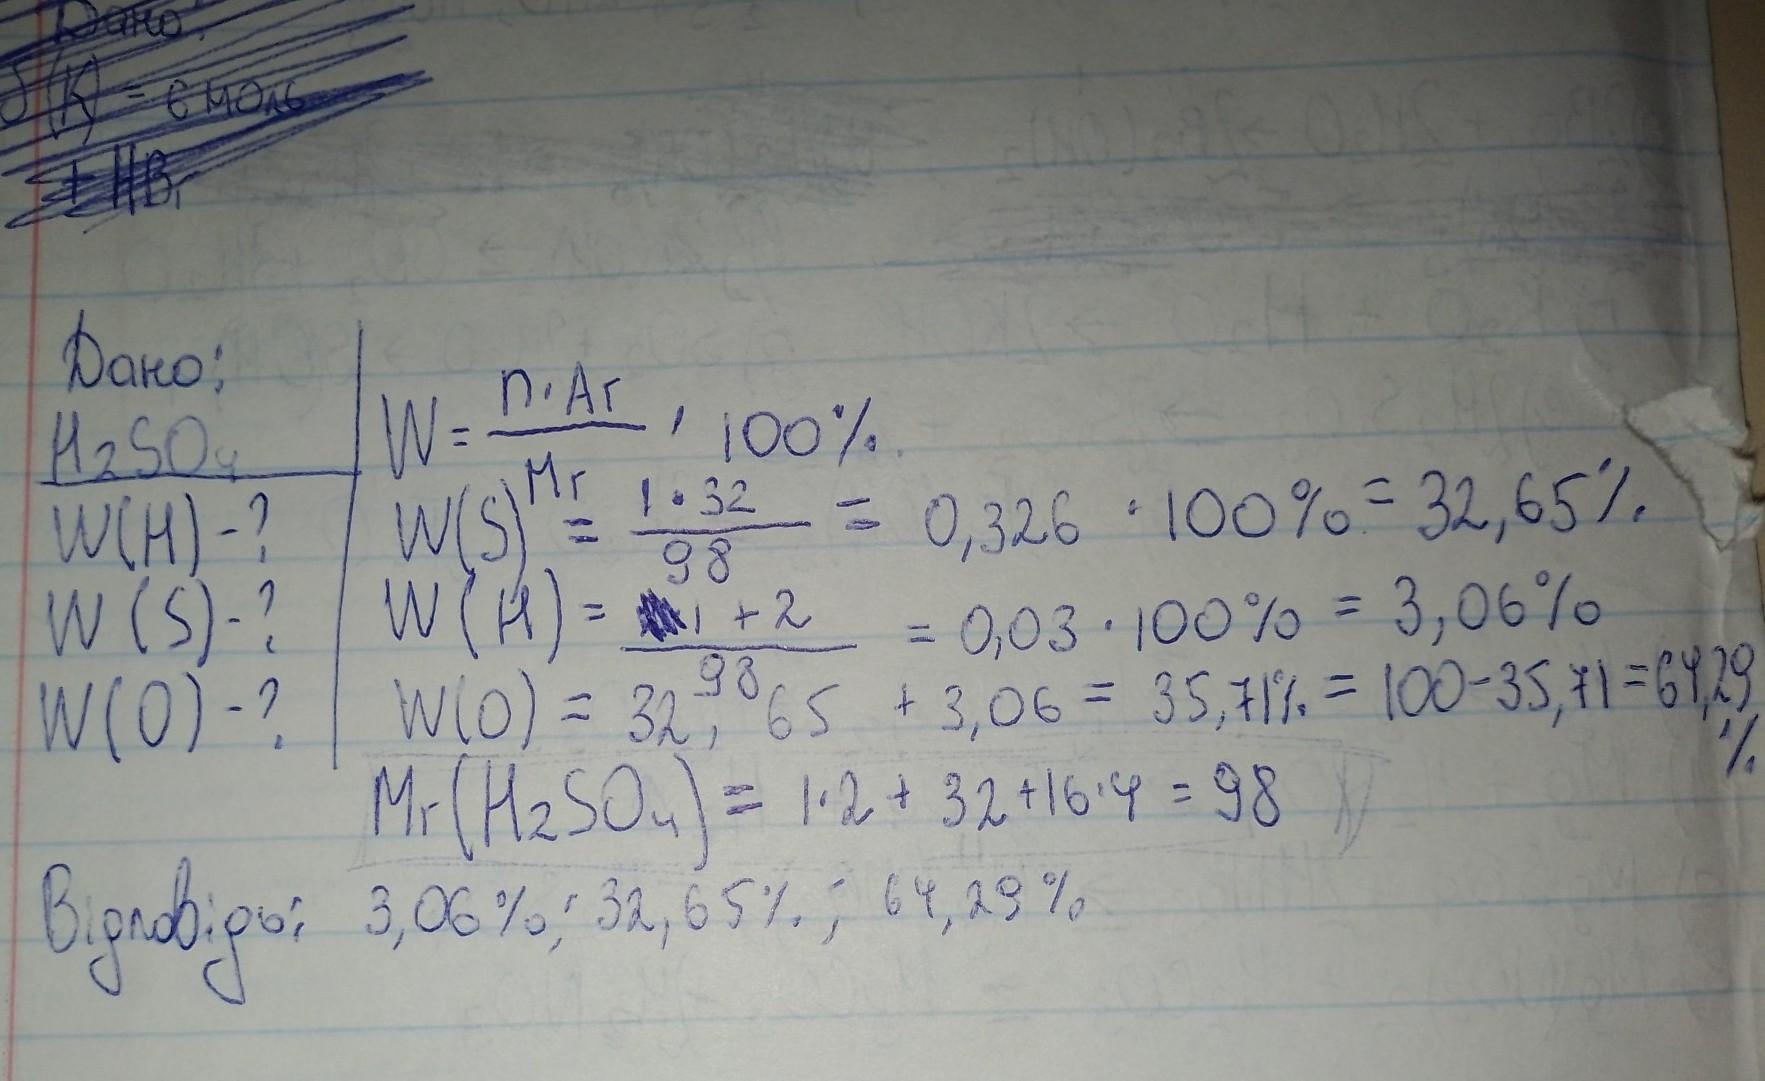 Дано:
(K) = 6 моль
+ HBr
Дано:
H2SO4
W(H) - ?
W(S) - ?
W(O) - ?
W = n · Ar / Mr · 100%
W(S) = 1 · 32 / 98 = 0,326 · 100% = 32,65%
W(H) = 1 + 2 / 98 = 0,03 · 100% = 3,06%
W(O) = 32,65 + 3,06 = 35,71% = 100 - 35,71 = 64,29 %
Mr(H2SO4) = 1·2 + 32 + 16·4 = 98
Відповідь: 3,06%; 32,65%; 64,29%